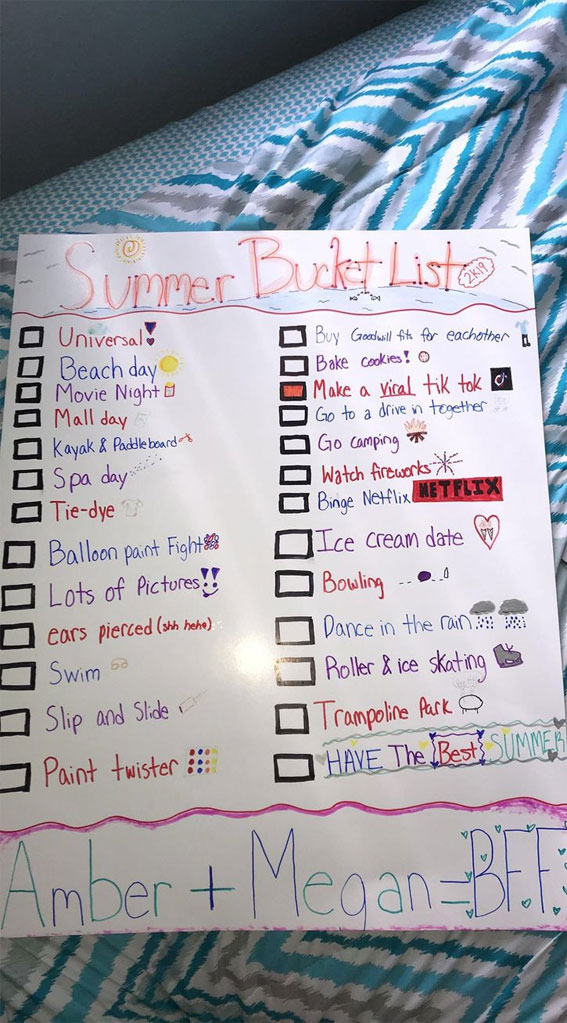 Summer Bucket List
2K19
Universal
Beach day
Movie Night
Mall day
Kayak & Paddleboard
Spa day
Tie-dye
Balloon paint Fight
Lots of Pictures!!
ears pierced (shh hehe)
Swim
Slip and Slide
Paint twister
Buy Goodwill fits for eachother
Bake cookies!
Make a viral tik tok
Go to a drive in together
Go camping
Watch fireworks
Binge Netflix NETFLIX
Ice cream date
Bowling
Dance in the rain
Roller & ice skating
Trampoline Park
HAVE The Best SUMMER
Amber + Megan = BFF